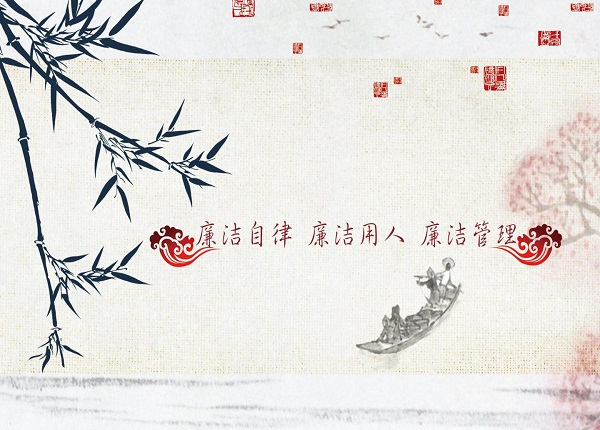 廉洁自律 廉洁用人 廉洁管理